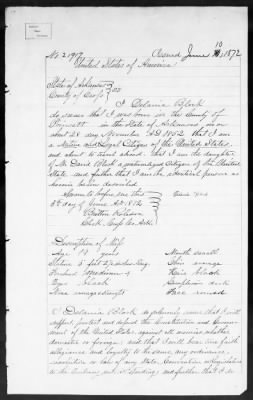 No 21917 Issued June 10 1872
United States of America
State of Arkansas
County of Cross } SS
I Delania Block
do swear that I was born in the County of
Poinsett in the State of Arkansas on or
about 28 day November AD 1852 that I am
a Native and Loyal Citizen of the United States,
and about to travel abroad. That I am the daughter
of M. David Block a naturalized Citizen of the United
State, and further that I am the identical person as
herein below described.
Sworn to before me this
5th day of June A.D. 1872
Clerk, Cross Co. Ark.
Description of Self
Age 19 years Mouth small
Stature 5 feet 2 inches Eng. Chin average
Forehead Medium Hair black
Eyes black Complexion dark
Nose average straight Face round
I Delania Block do solemnly swear that I will
support, protect and defend the Constitution and Govern-
ment of the United States, against all enemies whether
domestic or foreign: and that I will bear true faith
allegiance and loyalty to the same, any ordinance,
resolution or law of any State, Convention or Legislature
to the Contrary notwithstanding: and further that I do